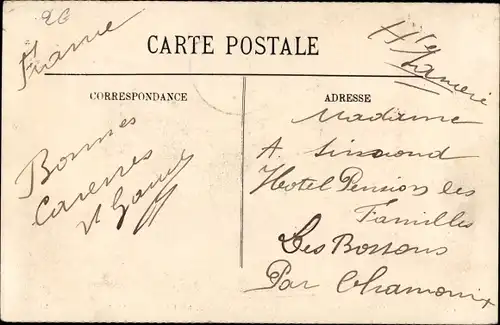 26
France
Hte
CARTE POSTALE
CORRESPONDANCE
ADRESSE
Bonnes
Caresses
Madame
A. Simond
Hotel Pension les
Familles
Les Bossons
Par Chamonix